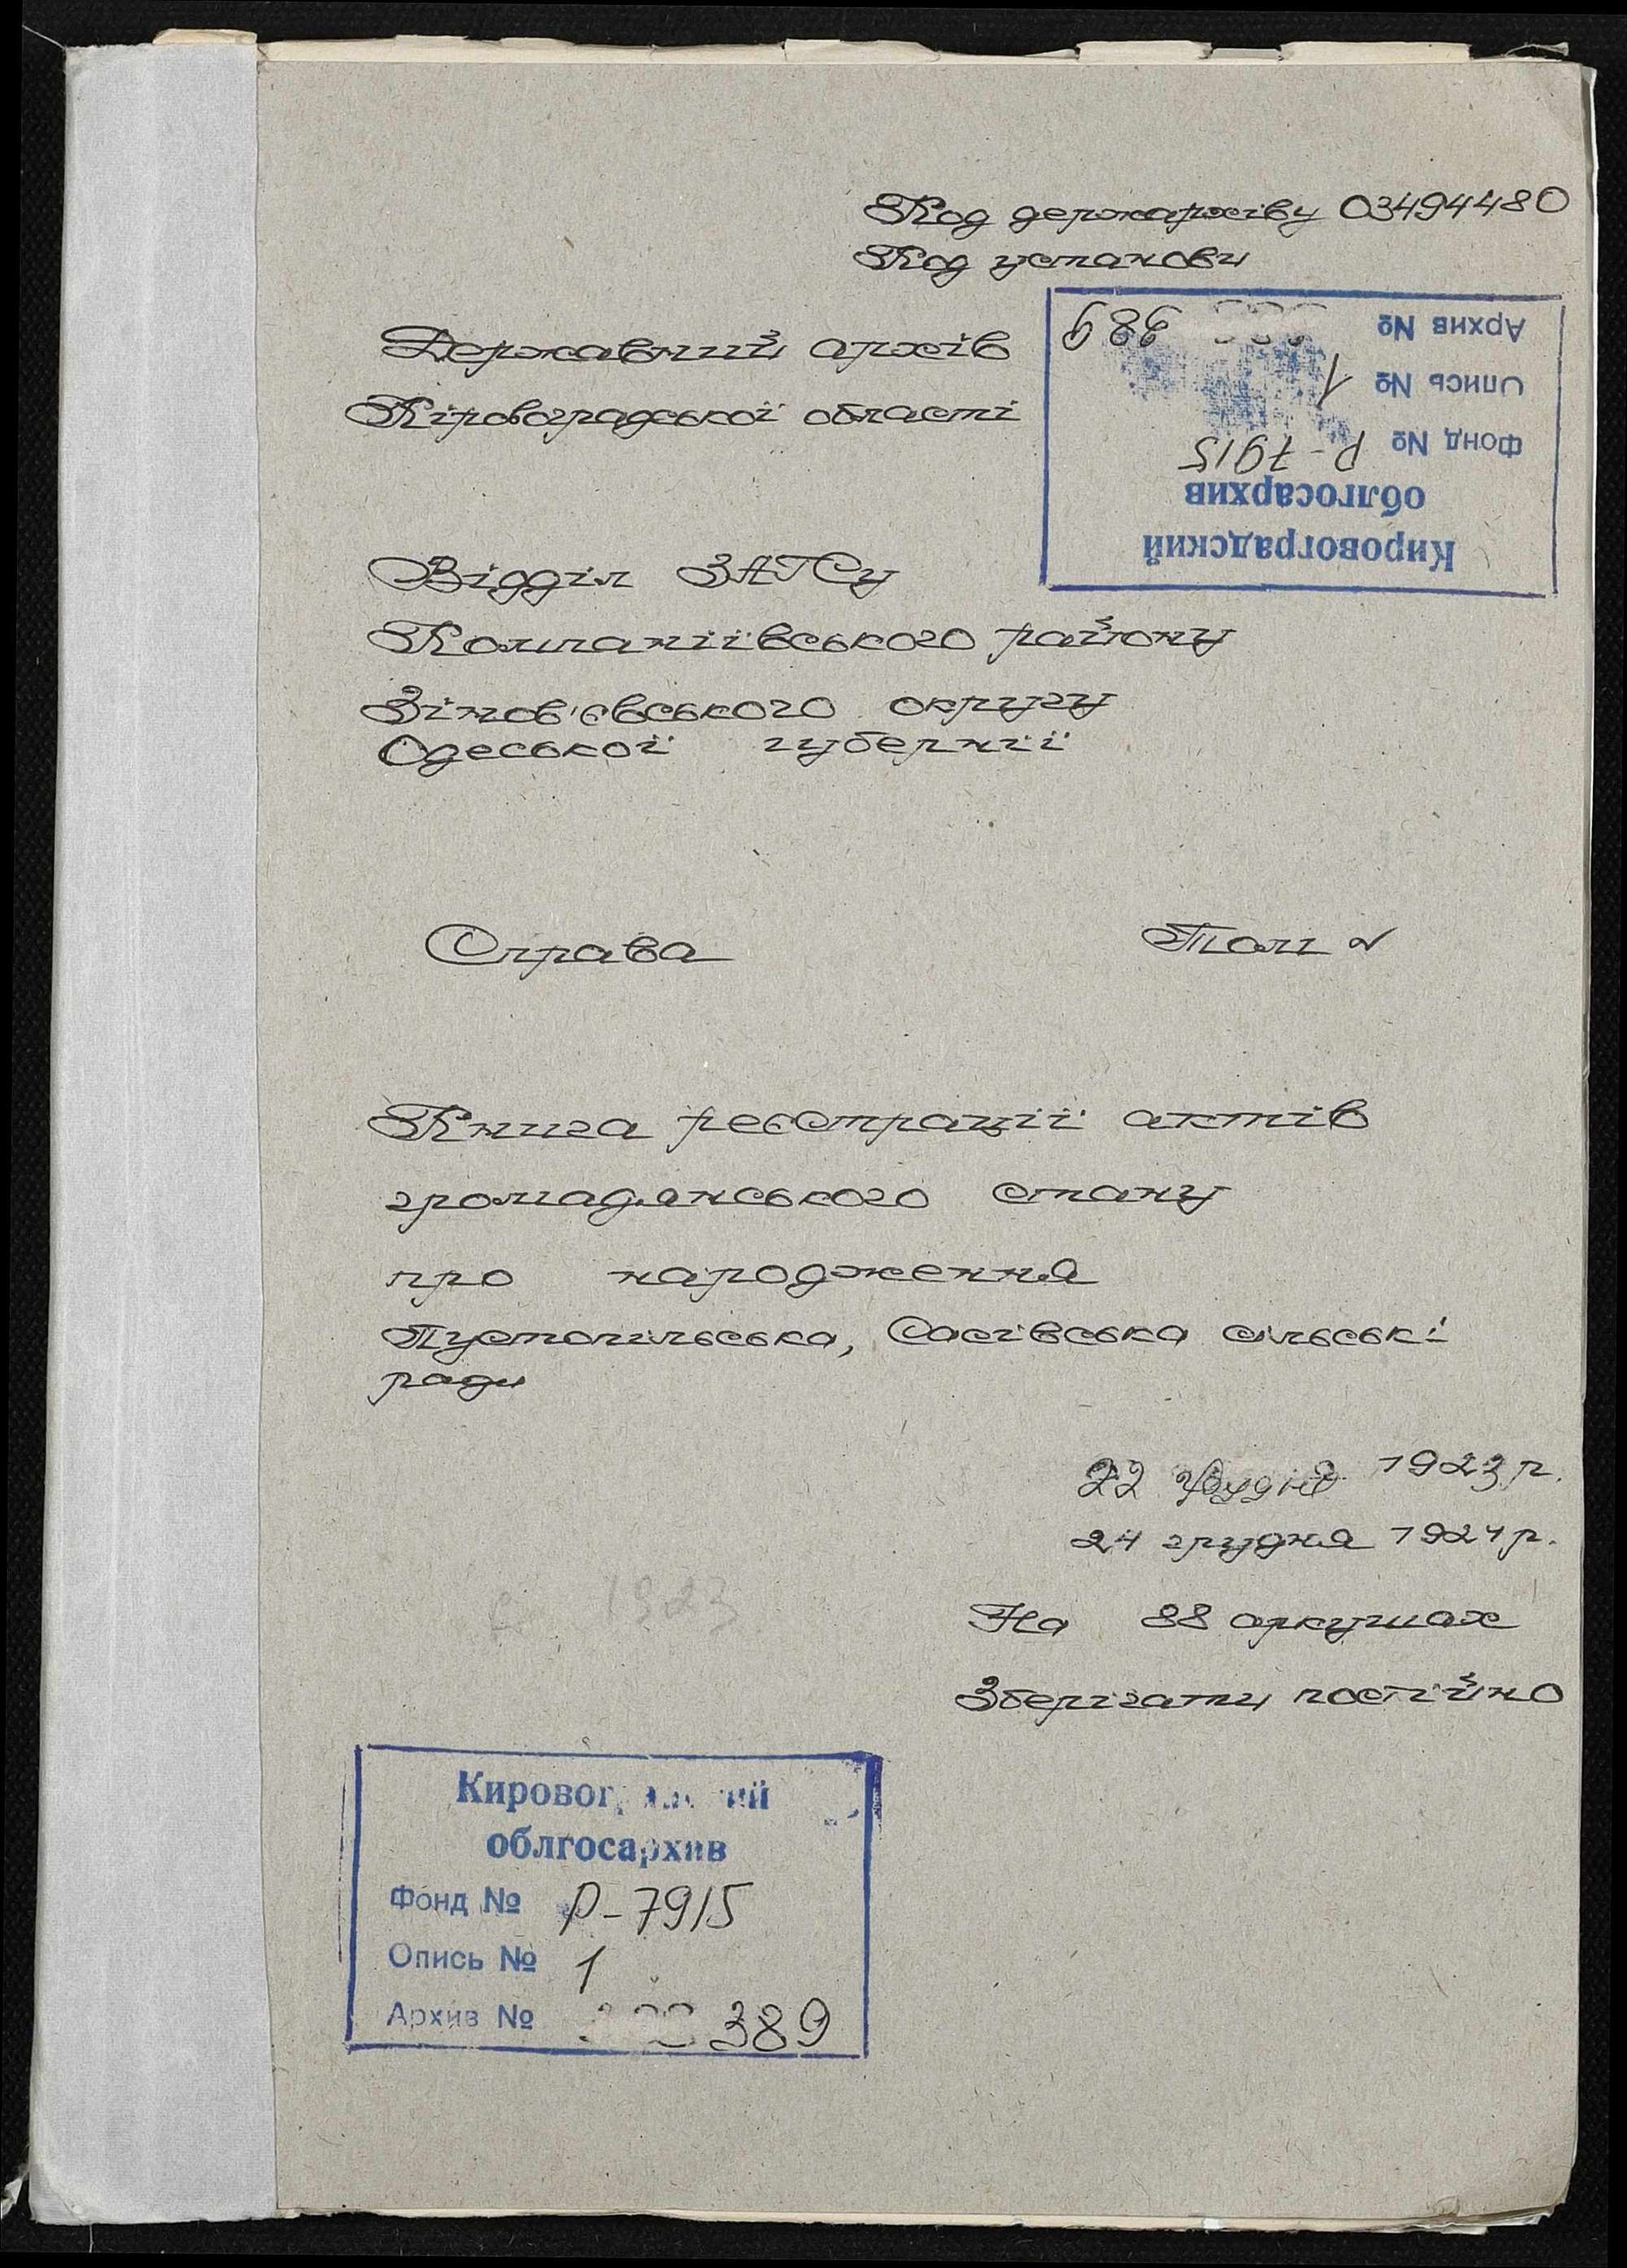 Код держархіву 03494480
Код установи
Державний архів
Кіровоградської області
Кировоградский
облгосархив
Фонд № Р-7915
Опись № 1
Архив № 389
Відділ ЗАГСу
Компаніївського району
Зінов'євського округу
Одеської губернії
Справа Том №
Книга реєстрації актів
громадянського стану
про народження
Пустопільська, Сасівська сільські
ради
22 грудня 1923 р.
24 грудня 1924 р.
1923
На 88 аркушах
Зберігати постійно
облгосархив
Фонд № Р-7915
Опись № 1
Архив № 389